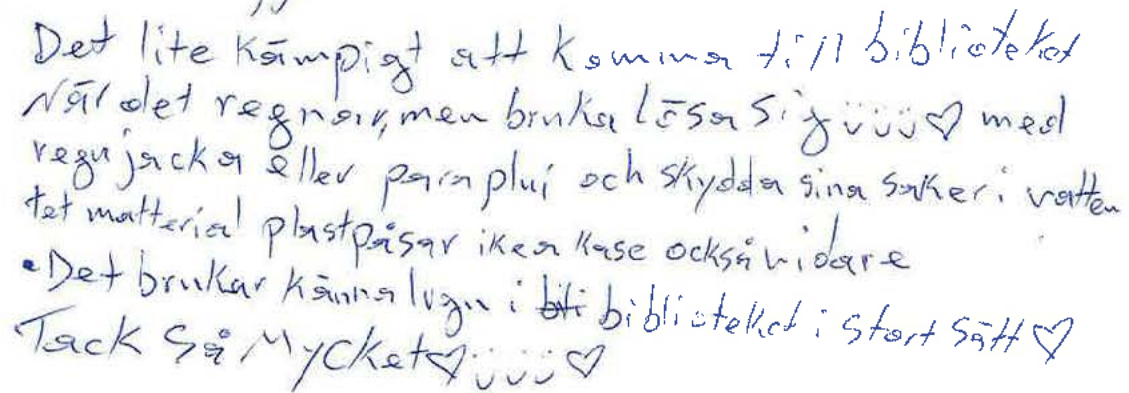 Det lite kämpigt att komma till biblioteket
När det regnar, men bruka lösa sig üüü♡ med
regnjacka eller paraplui och skydda sina saker i vatten
tet matterial plastpåsar ikea kase också vidare
•Det brukar känna lugn i biblioteket i stort sätt♡
Tack Så Mycket♡üüü♡